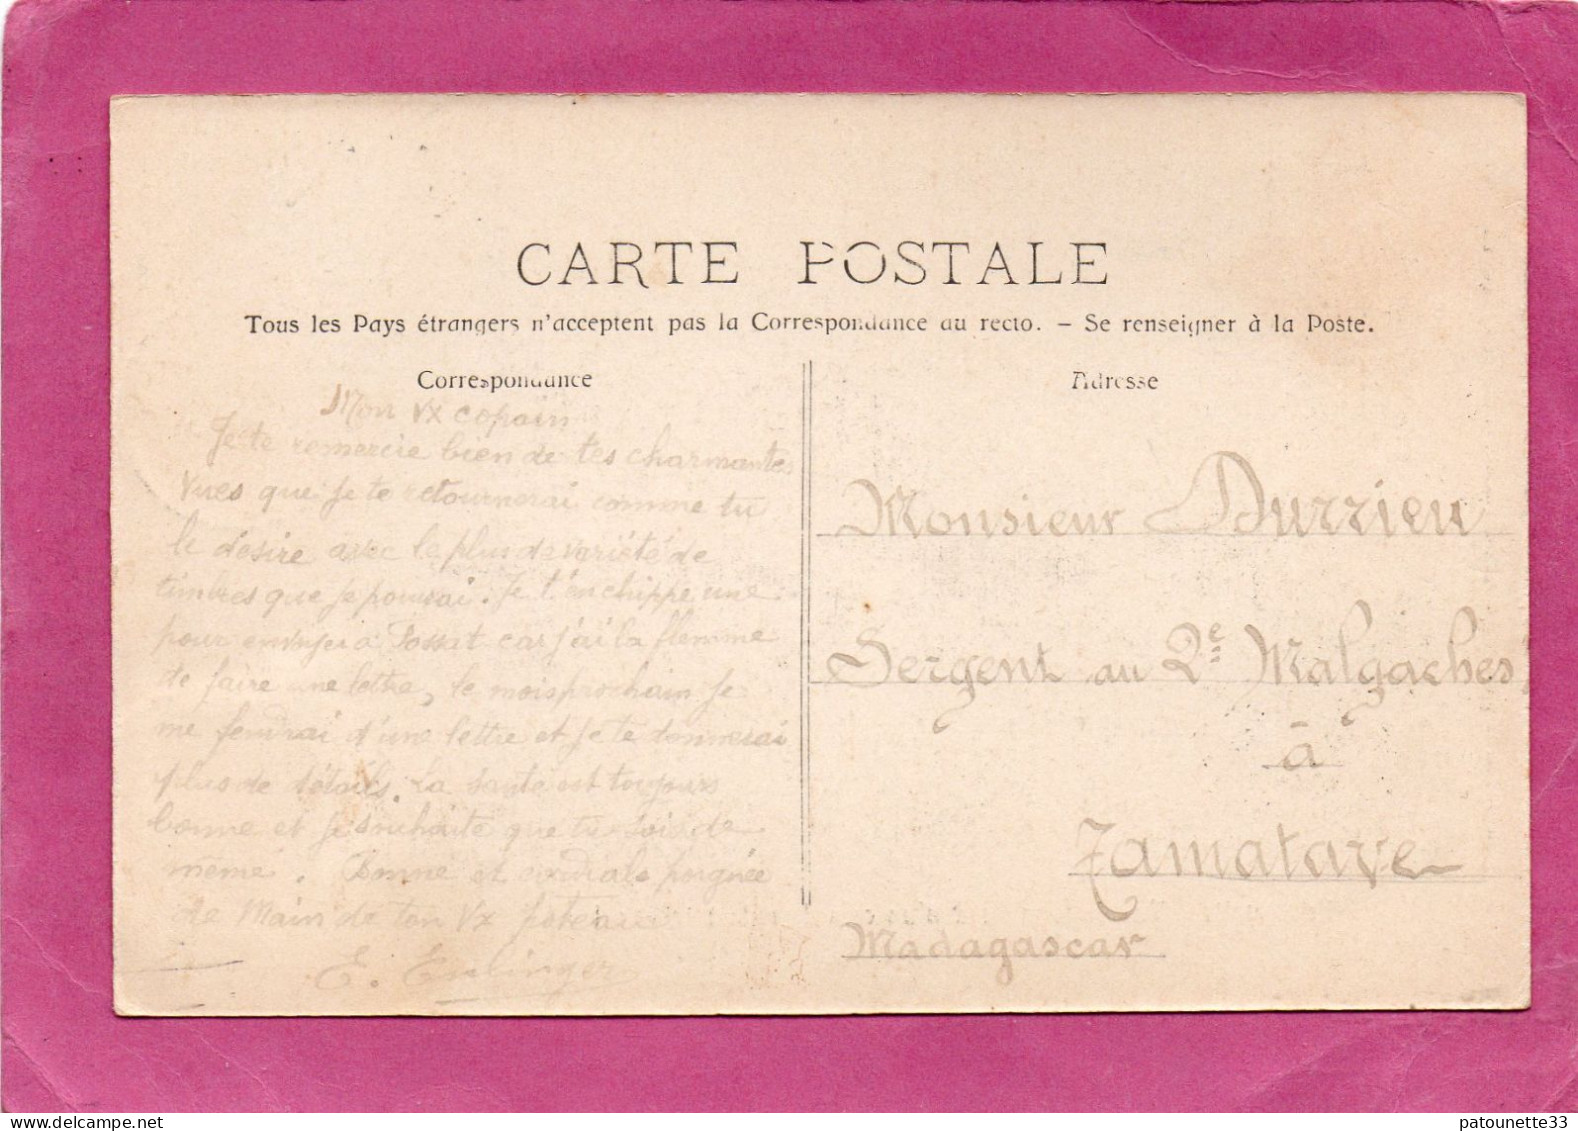 CARTE POSTALE
Tous les Pays étrangers n'acceptent pas la Correspondance au recto. – Se renseigner à la Poste.
Correspondance
Mon Vx copain
Je te remercie bien de tes charmantes
vues que je te retournerai comme tu
le désire avec le plus de variété de
timbres que je pourrai. Je t'en chippe une
pour envoyer à Possat car j'ai la flemme
de faire une lettre, le mois prochain je
me fendrai d'une lettre et je te donnerai
plus de détails. La santé est toujours
bonne et je souhaite que tu sois de
même. Bonne et cordiale poignée
de Main de ton Vx poteau
E.
Adresse
Monsieur Durrieu
Sergent au 2e Malgaches
à
Tamatave
Madagascar
patounette33
delcampe.net